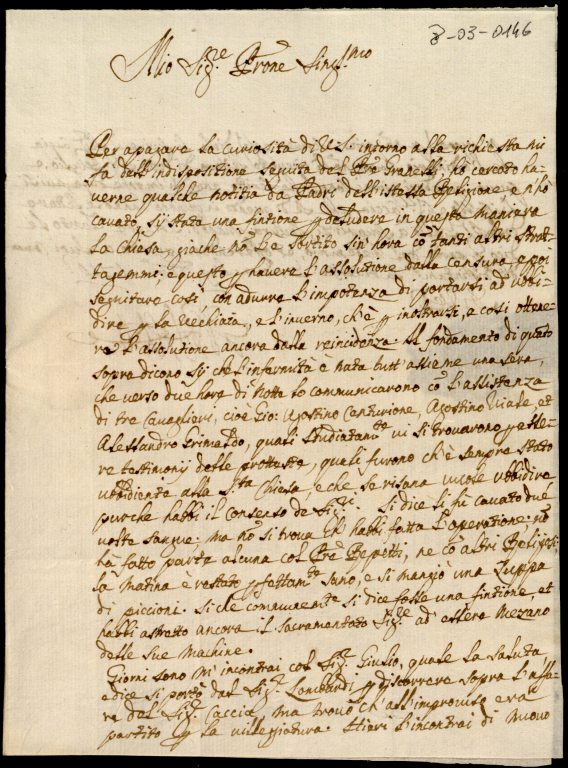 8-03-0146
Mio Sig.re Prone Sing.mo
Per apagare la curiosità di V.S. intorno alla richiesta mi
fà dell'indispositione seguita del Pre Granelli, hò cercato ha-
verne qualche notitia da Padri dell'istessa Religione e n'hò
cavato, sij stata una fintione p deludere in questa maniera
la Chiesa, giache nõ l'è sortito sin'hora cõ tanti altri strat-
tagemmi; e questo p havere l'assolutione dalla censura e poi
seguitare così, con adurre l'impotenza di portarsi ad ubbi-
dire p la vecchiaia, e l'inverno, ch'è p inostrarsi, e così ottene-
re l'assolutione ancora dalla reincidenza. Al fondamento di quanto
sopra dicono sij che l'infermità è nata tutt'assieme una sera,
che verso due hore di notte lo communicarono cõ l'assistenza
di tre Cavaglieri, cioè Gio: Agostino Centurione, Agostino Viale et
Alessandro Grimaldo, quali studiatam.te vi si trovarono p esse-
re testimonij delle proteste, quali furono ch'è sempre stato
ubbidiente alla S.ta Chiesa, e che se risana vuole ubbidire
purche habbi il consenso de Sig.ri. Si dice li fù cavato due
volte sangue, ma nõ si trova chi habbi fatta l'operatione; nõ
hà fatto parte alcuna col Pre Repetti, ne cõ altri Religiosi
la matina è restato p fettam.te sano, e si mangiò una zuppa
di piccioni. Si che communem.te si dice fosse una fintione et
habbi astratto ancora il sacramentato Sig.re ad essere mezano
delle sue machine.
Giorni sono m'incontrai col Sig.r Giulio, quale la saluta,
e dice si portò dal Sig.r Lombardi p discorrere sopra l'affa-
re del Sig.r Caccia ma trovò ch'all'improviso era
partito p la villegiatura. Hieri l'incontrai di nuovo